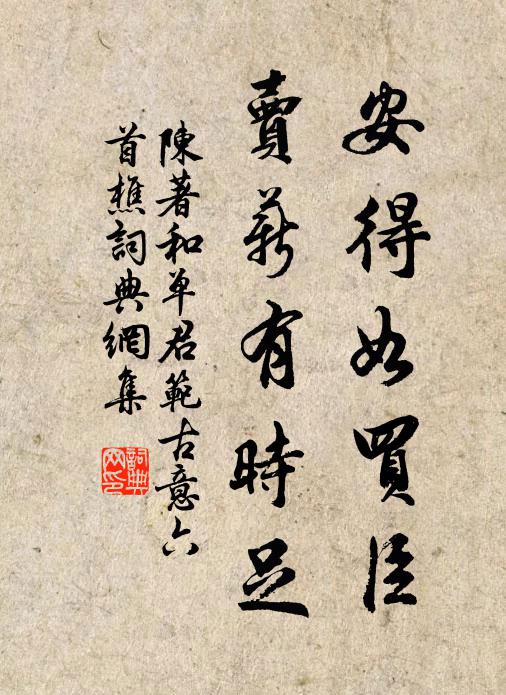 安得如買臣
賣薪有時足
陳著和单君範古意六
首樵詞典網集
詞典網印